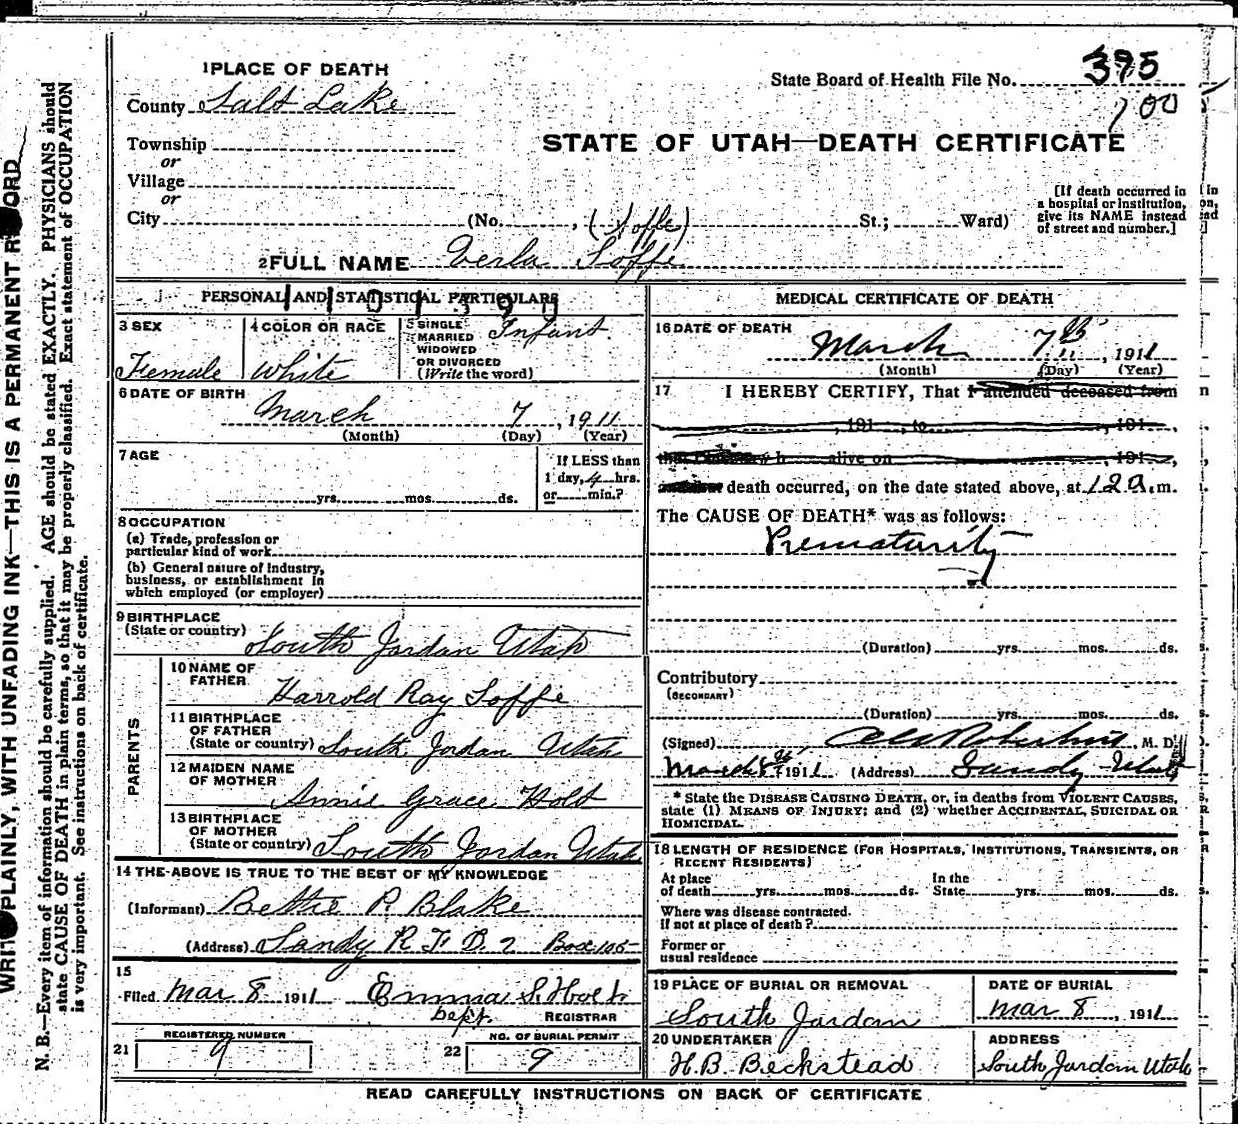 1 PLACE OF DEATH
State Board of Health File No. 395
County Salt Lake
100
STATE OF UTAH—DEATH CERTIFICATE
Township
or
Village
or
City (No. , (Soffe) St.; Ward)
[If death occurred in
a hospital or institution,
give its NAME instead
of street and number.]
2 FULL NAME Verla Soffe
PERSONAL AND STATISTICAL PARTICULARS
3 SEX
Female
4 COLOR OR RACE
White
5 SINGLE
MARRIED
WIDOWED
OR DIVORCED
(Write the word)
Infant.
6 DATE OF BIRTH
March 7, 1911
(Month) (Day) (Year)
7 AGE
yrs. mos. ds.
If LESS than
1 day, 4 hrs.
or min.?
8 OCCUPATION
(a) Trade, profession or
particular kind of work
(b) General nature of Industry,
business, or establishment in
which employed (or employer)
9 BIRTHPLACE
(State or country) South Jordan Utah
PARENTS
10 NAME OF
FATHER
Harrold Ray Soffe
11 BIRTHPLACE
OF FATHER
(State or country) South Jordan Utah
12 MAIDEN NAME
OF MOTHER
Annie Grace Holt
13 BIRTHPLACE
OF MOTHER
(State or country) South Jordan Utah
14 THE ABOVE IS TRUE TO THE BEST OF MY KNOWLEDGE
(Informant) Bettie P. Blake
(Address) Sandy R.F.D. 2 Box 105
15
Filed Mar 8 1911 Emma S. Holt
Dept. REGISTRAR
REGISTERED NUMBER
21 9
NO. OF BURIAL PERMIT
22 9
MEDICAL CERTIFICATE OF DEATH
16 DATE OF DEATH
March 7th, 1911
(Month) (Day) (Year)
17 I HEREBY CERTIFY, That I attended deceased from
, 191 , to , 191 ,
h alive on , 191 ,
death occurred, on the date stated above, at 12 a. m.
The CAUSE OF DEATH* was as follows:
Prematurity
(Duration) yrs. mos. ds.
Contributory
(SECONDARY)
(Duration) yrs. mos. ds.
(Signed) , M. D.
March 8th 1911 (Address) Sandy Utah
* State the DISEASE CAUSING DEATH, or, in deaths from VIOLENT CAUSES,
state (1) MEANS OF INJURY; and (2) whether ACCIDENTAL, SUICIDAL OR
HOMICIDAL.
18 LENGTH OF RESIDENCE (FOR HOSPITALS, INSTITUTIONS, TRANSIENTS, OR
RECENT RESIDENTS)
At place
of death yrs. mos. ds.
In the
State yrs. mos. ds.
Where was disease contracted.
if not at place of death?
Former or
usual residence
19 PLACE OF BURIAL OR REMOVAL
South Jordan
DATE OF BURIAL
Mar 8, 1911
20 UNDERTAKER
H.B. Beckstead
ADDRESS
South Jordan Utah
READ CAREFULLY INSTRUCTIONS ON BACK OF CERTIFICATE
WRITE PLAINLY, WITH UNFADING INK—THIS IS A PERMANENT RECORD
N. B.—Every item of information should be carefully supplied. AGE should be stated EXACTLY. PHYSICIANS should
state CAUSE OF DEATH in plain terms, so that it may be properly classified. Exact statement of OCCUPATION
is very important. See instructions on back of certificate.